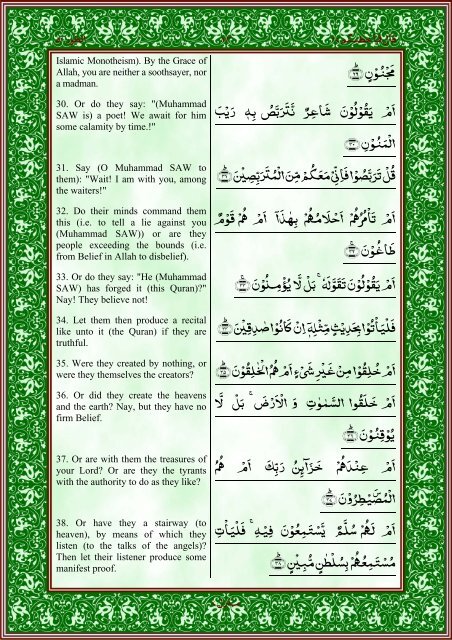 Islamic Monotheism). By the Grace of
Allah, you are neither a soothsayer, nor
a madman.
مَجْنُوْنٍ ﴿٢٩﴾
30. Or do they say: "(Muhammad
SAW is) a poet! We await for him
some calamity by time.!"
اَمْ يَقُوْلُوْنَ شَاعِرٌ نَّتَرَبَّصُ بِهٖ رَيْبَ
الْمَنُوْنِ ﴿٣٠﴾
31. Say (O Muhammad SAW to
them): "Wait! I am with you, among
the waiters!"
قُلْ تَرَبَّصُوْا فَاِنِّيْ مَعَكُمْ مِّنَ الْمُتَرَبِّصِيْنَ ﴿٣١﴾
32. Do their minds command them
this (i.e. to tell a lie against you
(Muhammad SAW)) or are they
people exceeding the bounds (i.e.
from Belief in Allah to disbelief).
اَمْ تَاْمُرُهُمْ اَحْلَامُهُمْ بِهٰذَآ اَمْ هُمْ قَوْمٌ
طَاغُوْنَ ﴿٣٢﴾
33. Or do they say: "He (Muhammad
SAW) has forged it (this Quran)?"
Nay! They believe not!
اَمْ يَقُوْلُوْنَ تَقَوَّلَهٗ ۚ بَلْ لَّا يُؤْمِنُوْنَ ﴿٣٣﴾
34. Let them then produce a recital
like unto it (the Quran) if they are
truthful.
فَلْيَاْتُوْا بِحَدِيْثٍ مِّثْلِهٖٓ اِنْ كَانُوْا صٰدِقِيْنَ ﴿٣٤﴾
35. Were they created by nothing, or
were they themselves the creators?
اَمْ خُلِقُوْا مِنْ غَيْرِ شَيْءٍ اَمْ هُمُ الْخٰلِقُوْنَ ﴿٣٥﴾
36. Or did they create the heavens
and the earth? Nay, but they have no
firm Belief.
اَمْ خَلَقُوا السَّمٰوٰتِ وَ الْاَرْضَ ۚ بَلْ لَّا
يُوْقِنُوْنَ ﴿٣٦﴾
37. Or are with them the treasures of
your Lord? Or are they the tyrants
with the authority to do as they like?
اَمْ عِنْدَهُمْ خَزَآئِنُ رَبِّكَ اَمْ هُمُ
الْمُصَۜيْطِرُوْنَ ﴿٣٧﴾
38. Or have they a stairway (to
heaven), by means of which they
listen (to the talks of the angels)?
Then let their listener produce some
manifest proof.
اَمْ لَهُمْ سُلَّمٌ يَّسْتَمِعُوْنَ فِيْهِ ۚ فَلْيَاْتِ
مُسْتَمِعُهُمْ بِسُلْطٰنٍ مُّبِيْنٍ ﴿٣٨﴾